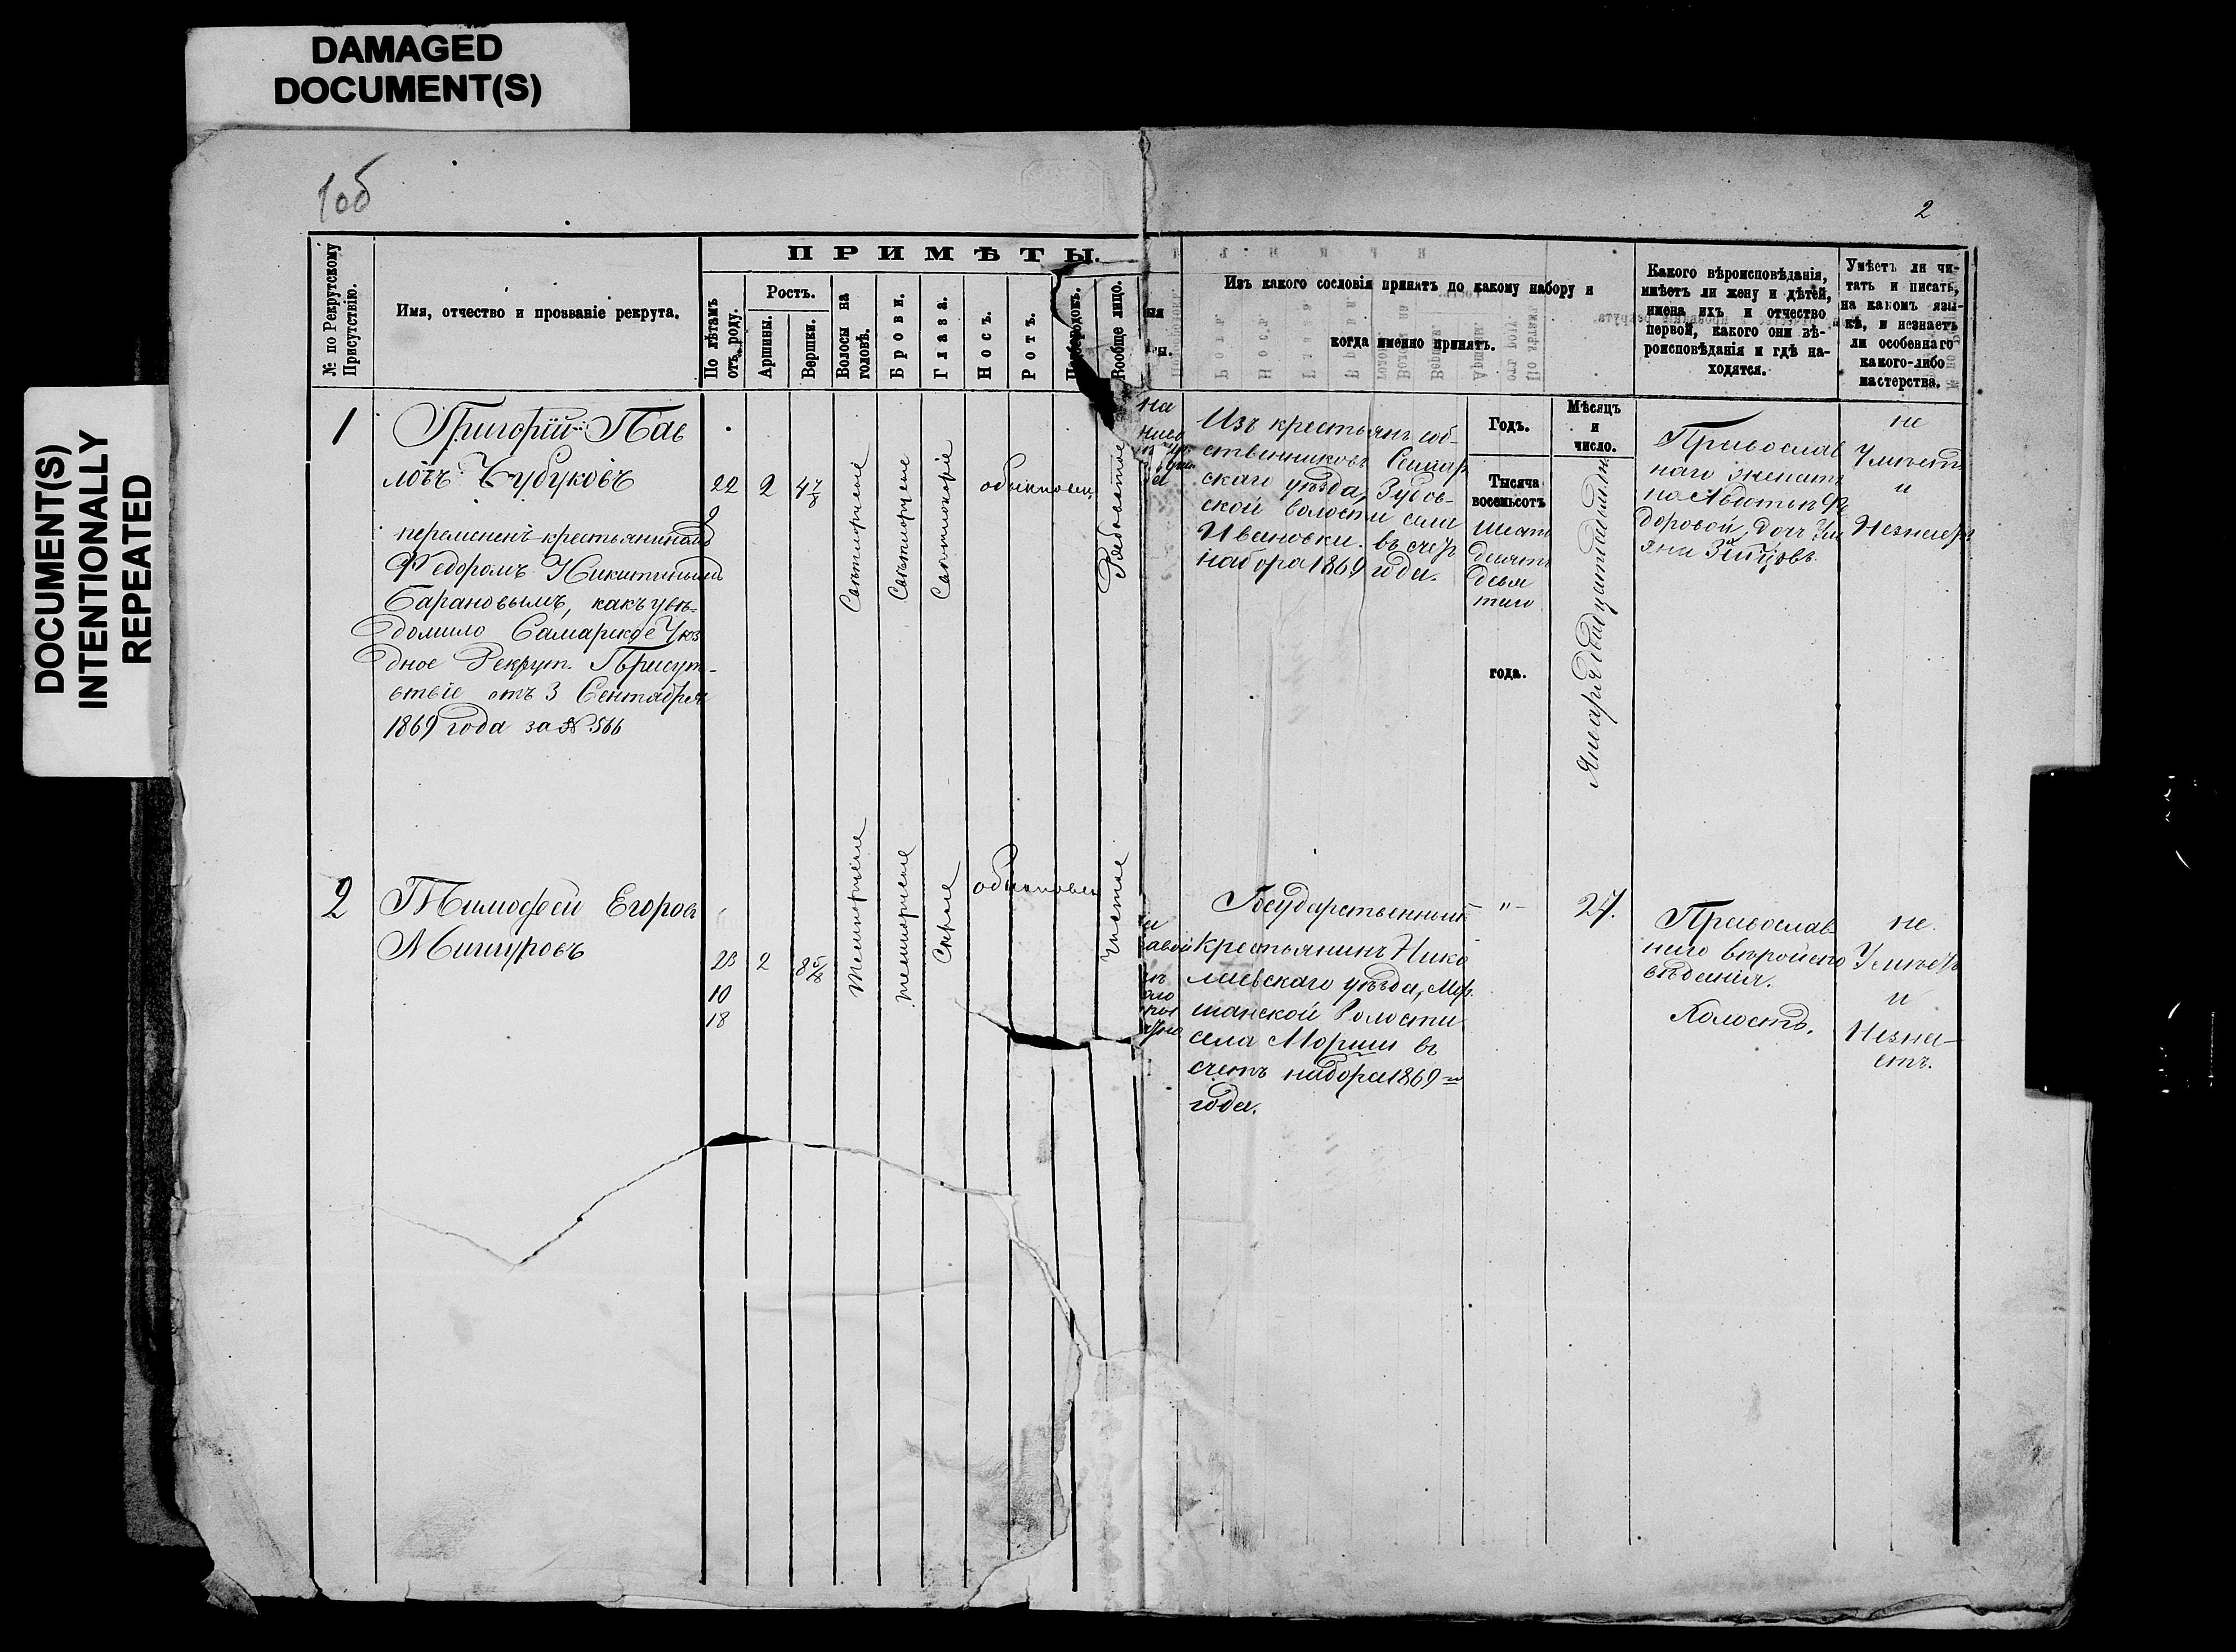 DAMAGED
DOCUMENT(S)
DOCUMENT(S)
INTENTIONALLY
REPEATED
1об
2
№ по Рекрутскому
Присутствію.
Имя, отчество и прозваніе рекрута.
ПРИМѢТЫ.
По лѣтамъ
отъ роду.
Ростъ.
Аршины.
Вершки.
Волосы на
головѣ.
Брови.
Глаза.
Носъ.
Ротъ.
Подбородокъ.
Вообще лицо.
Изъ какого сословія принятъ по какому набору и
когда именно принятъ.
Какого вѣроисповѣданія,
имѣетъ ли жену и дѣтей,
имена ихъ и отчество
первой, какого они вѣ-
роисповѣданія и гдѣ на-
ходятся.
Умѣетъ ли чи-
тать и писать,
на какомъ язы-
кѣ, и незнаетъ
ли особеннаго
какого-либо
мастерства.
1
Григорій Пав
ловъ Чубуковъ
перемененъ крестьяниномъ
Федоромъ Никитинымъ
Барановымъ, какъ увѣ-
домило Самарское Уѣз
дное Рекрут. Присут-
ствіе отъ 3 Сентября
1869 года за № 566
22
2
4 7/8
Свѣтлорусые
Свѣтлорусые
Свѣтлокаріе
обыкновен
Рябоватое
Изъ крестьянъ соб-
ственниковъ Самар
скаго уѣзда, Зубов-
ской волости села
Ивановки. въ счетъ
набора 1869 года.
Годъ.
Тысяча
восемьсотъ
шесть
десятъ
девя
таго
года.
Мѣсяцъ
и
число.
Января двадцать
Православ
наго женатъ
на Авдотье Фе
доровой, дочь
не
Умѣетъ
и
Незнаетъ
2
Тимофей Егоровъ
Мишуровъ
23
10
18
2
8 5/8
Темнорусые
темнорусые
Серые
обыкновен
Чистое
Государственный
крестьянинъ Нико
лаевскаго уѣзда, Мор
шанской Волости
села Морши въ
счетъ набора 1869 го
года.
"-
27.
Православ
наго вѣроиспо
вѣданія.
Холостъ.
не
Умѣетъ
и
Незна-
етъ.